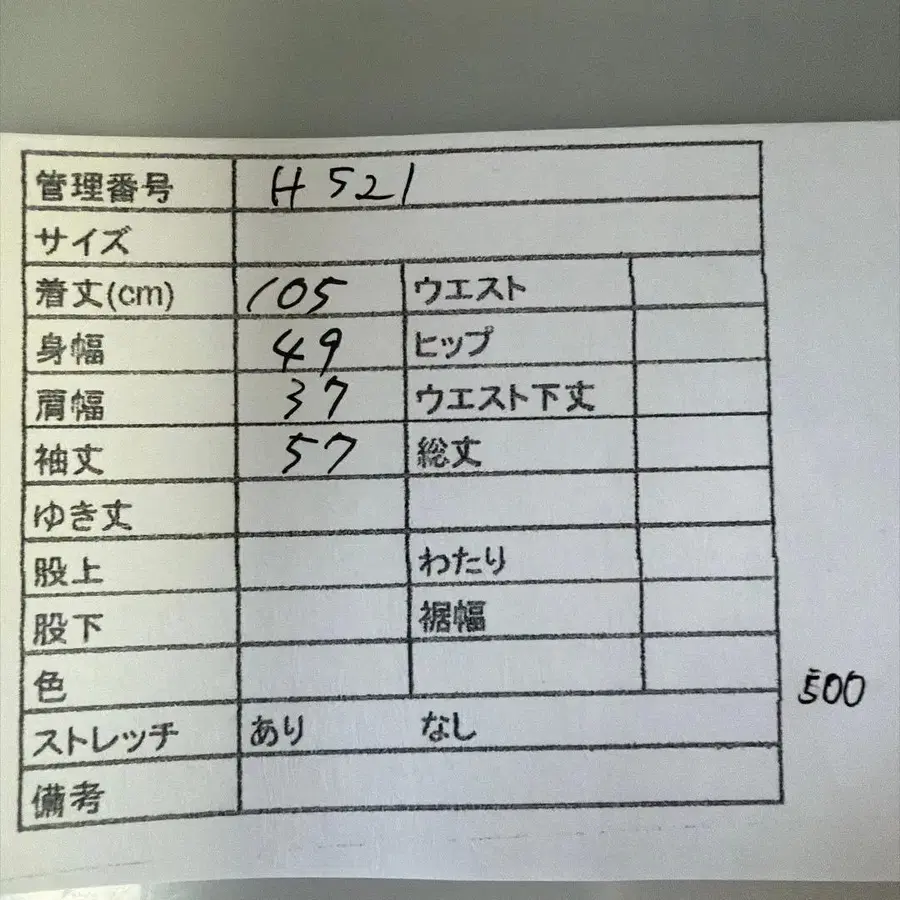 管理番号 H 521
サイズ
着丈(cm) 105 ウエスト
身幅 49 ヒップ
肩幅 37 ウエスト下丈
袖丈 57 総丈
ゆき丈
股上 わたり
股下 裾幅
色
500
ストレッチ あり なし
備考